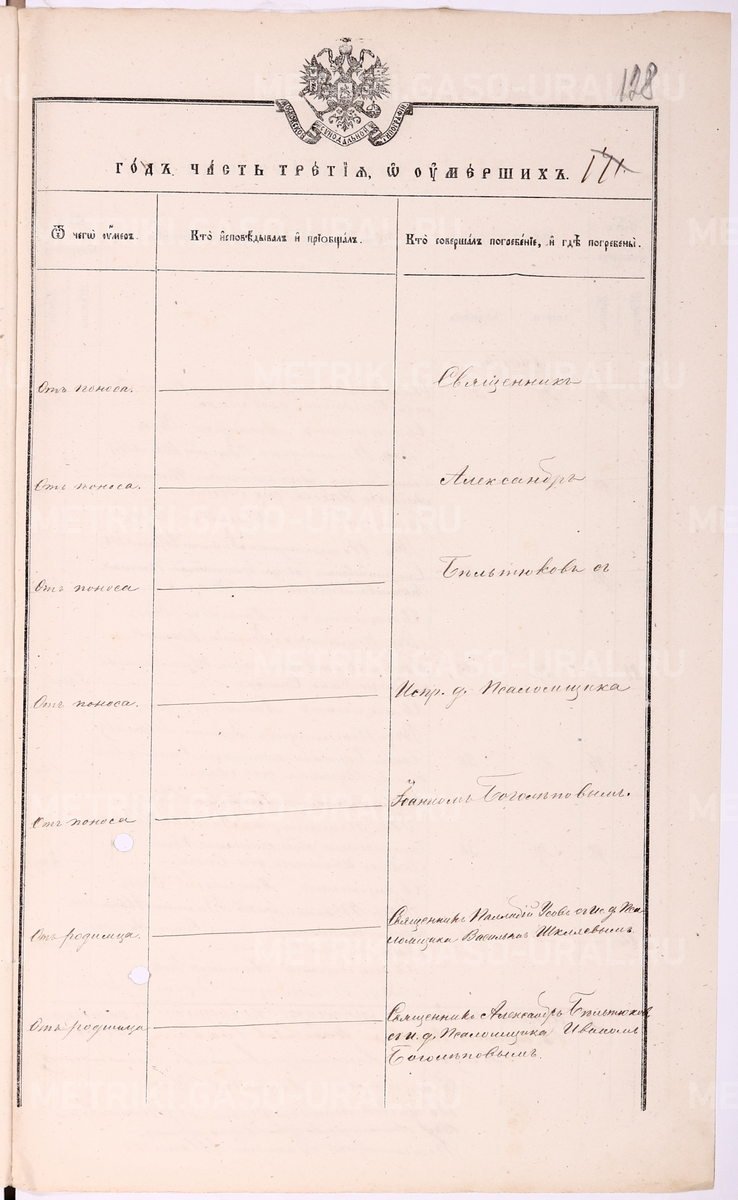 128
МОСКОВСКОЙ СѴНОДАЛЬНОЙ ТИПОГРАФІИ
ГОДЪ ЧАСТЬ ТРЕТІЯ, Ѽ ОУМЕРШИХЪ. III.
Ѿ чегѡ оумеръ.
Кто исповѣдывалъ и пріобщалъ.
Кто совершалъ погребеніе, и гдѣ погребены.
Отъ поноса.
Священникъ
Отъ поноса.
Александръ
Отъ поноса
Бѣльтюковъ съ
Отъ поноса.
Испр. д. Псаломщика
Отъ поноса
Іоанномъ Боголѣповымъ.
Отъ родимца.
Священникъ Палладій Усовъ съ и. д. Пса-
ломщика Васильемъ Шкляевымъ.
Отъ родимца
Священникъ Александръ Бѣльтюковъ
съ и. д. Псаломщика Иваномъ
Боголѣповымъ.
METRIKI.GASO-URAL.RU